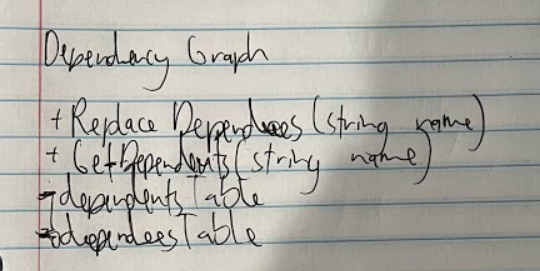 Dependency Graph
+ Replace Dependees (string name)
+ GetDependents (string name)
- dependents Table
- dependees Table